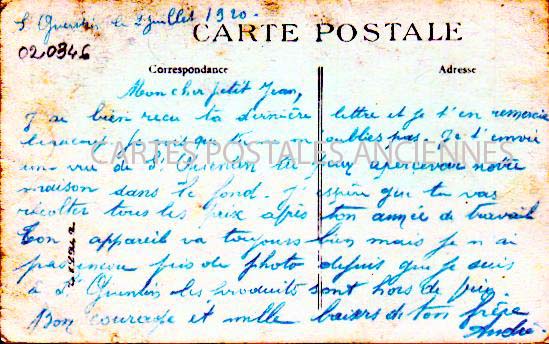 St Quentin le 2 juillet 1920.
020346
CARTE POSTALE
Correspondance
Adresse
Mon cher petit Jean,
J'ai bien reçu ta dernière lettre et je t'en remercie
beaucoup oublies pas. Je t'envoie
CARTES POSTALES ANCIENNES
une vue de St Quentin tu peux apercevoir notre
maison dans le fond. J'espère que tu vas
récolter tous les prix après ton année de travail
Ton appareil va toujours bien mais je n'ai
pas encore pris de photo depuis que je suis
à St Quentin les produits sont hors de prix.
Bon courage et mille baisers de ton frère
André.